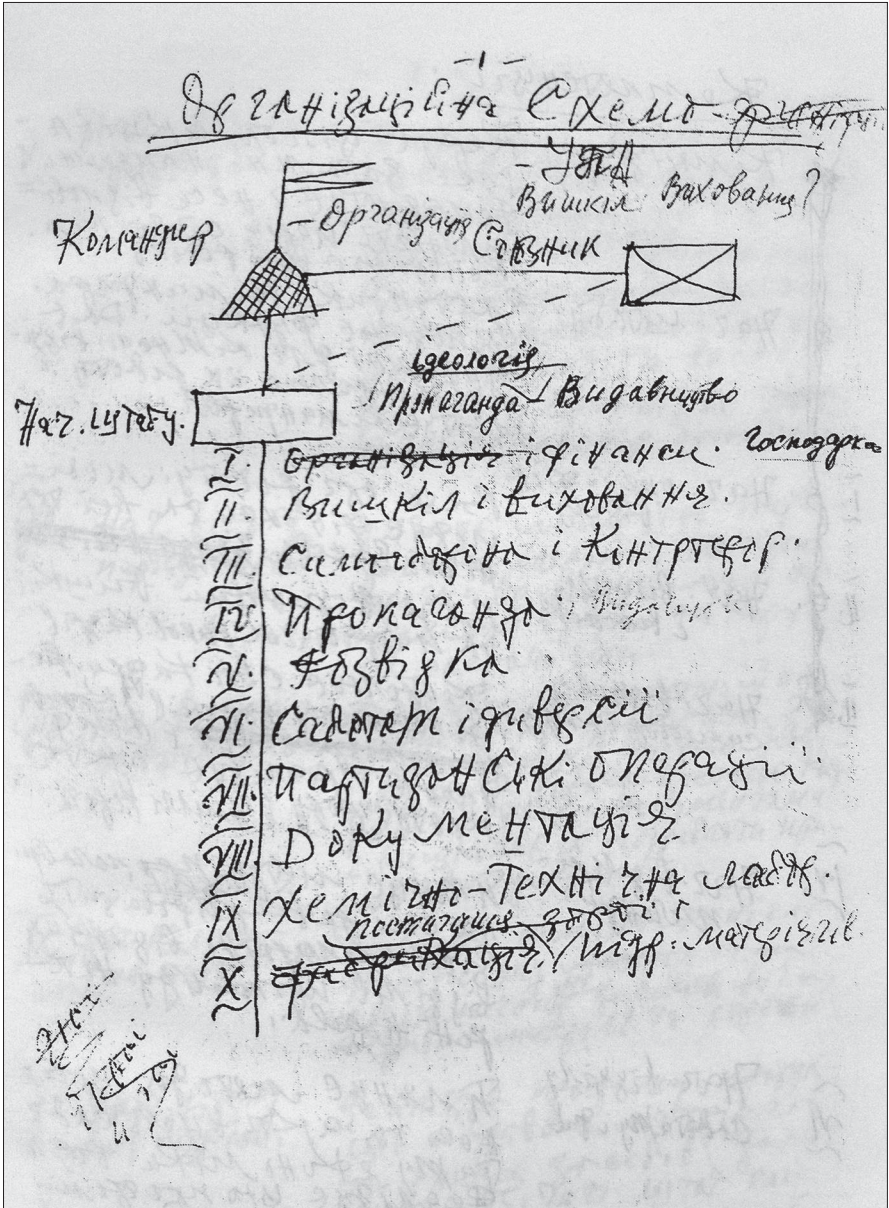 - 1 -
Організаційна Схема
- УПА
Вишкіл Виховання?
- Організація
Командир
Союзник
ідеологія
Пропаганда Видавництво
Нач. штабу.
I. Організація і фінанси. Господарка
II. Вишкіл і виховання.
III. і Контртерор.
IV. Пропаганда і Видавництво
V. Розвідка
VI. Саботаж і диверсії
VII. Партизанські операції.
VIII. Документація
IX Хемічно-Технічна лябор.
постачання зброї і
X фабрикація / підр. матеріялів.